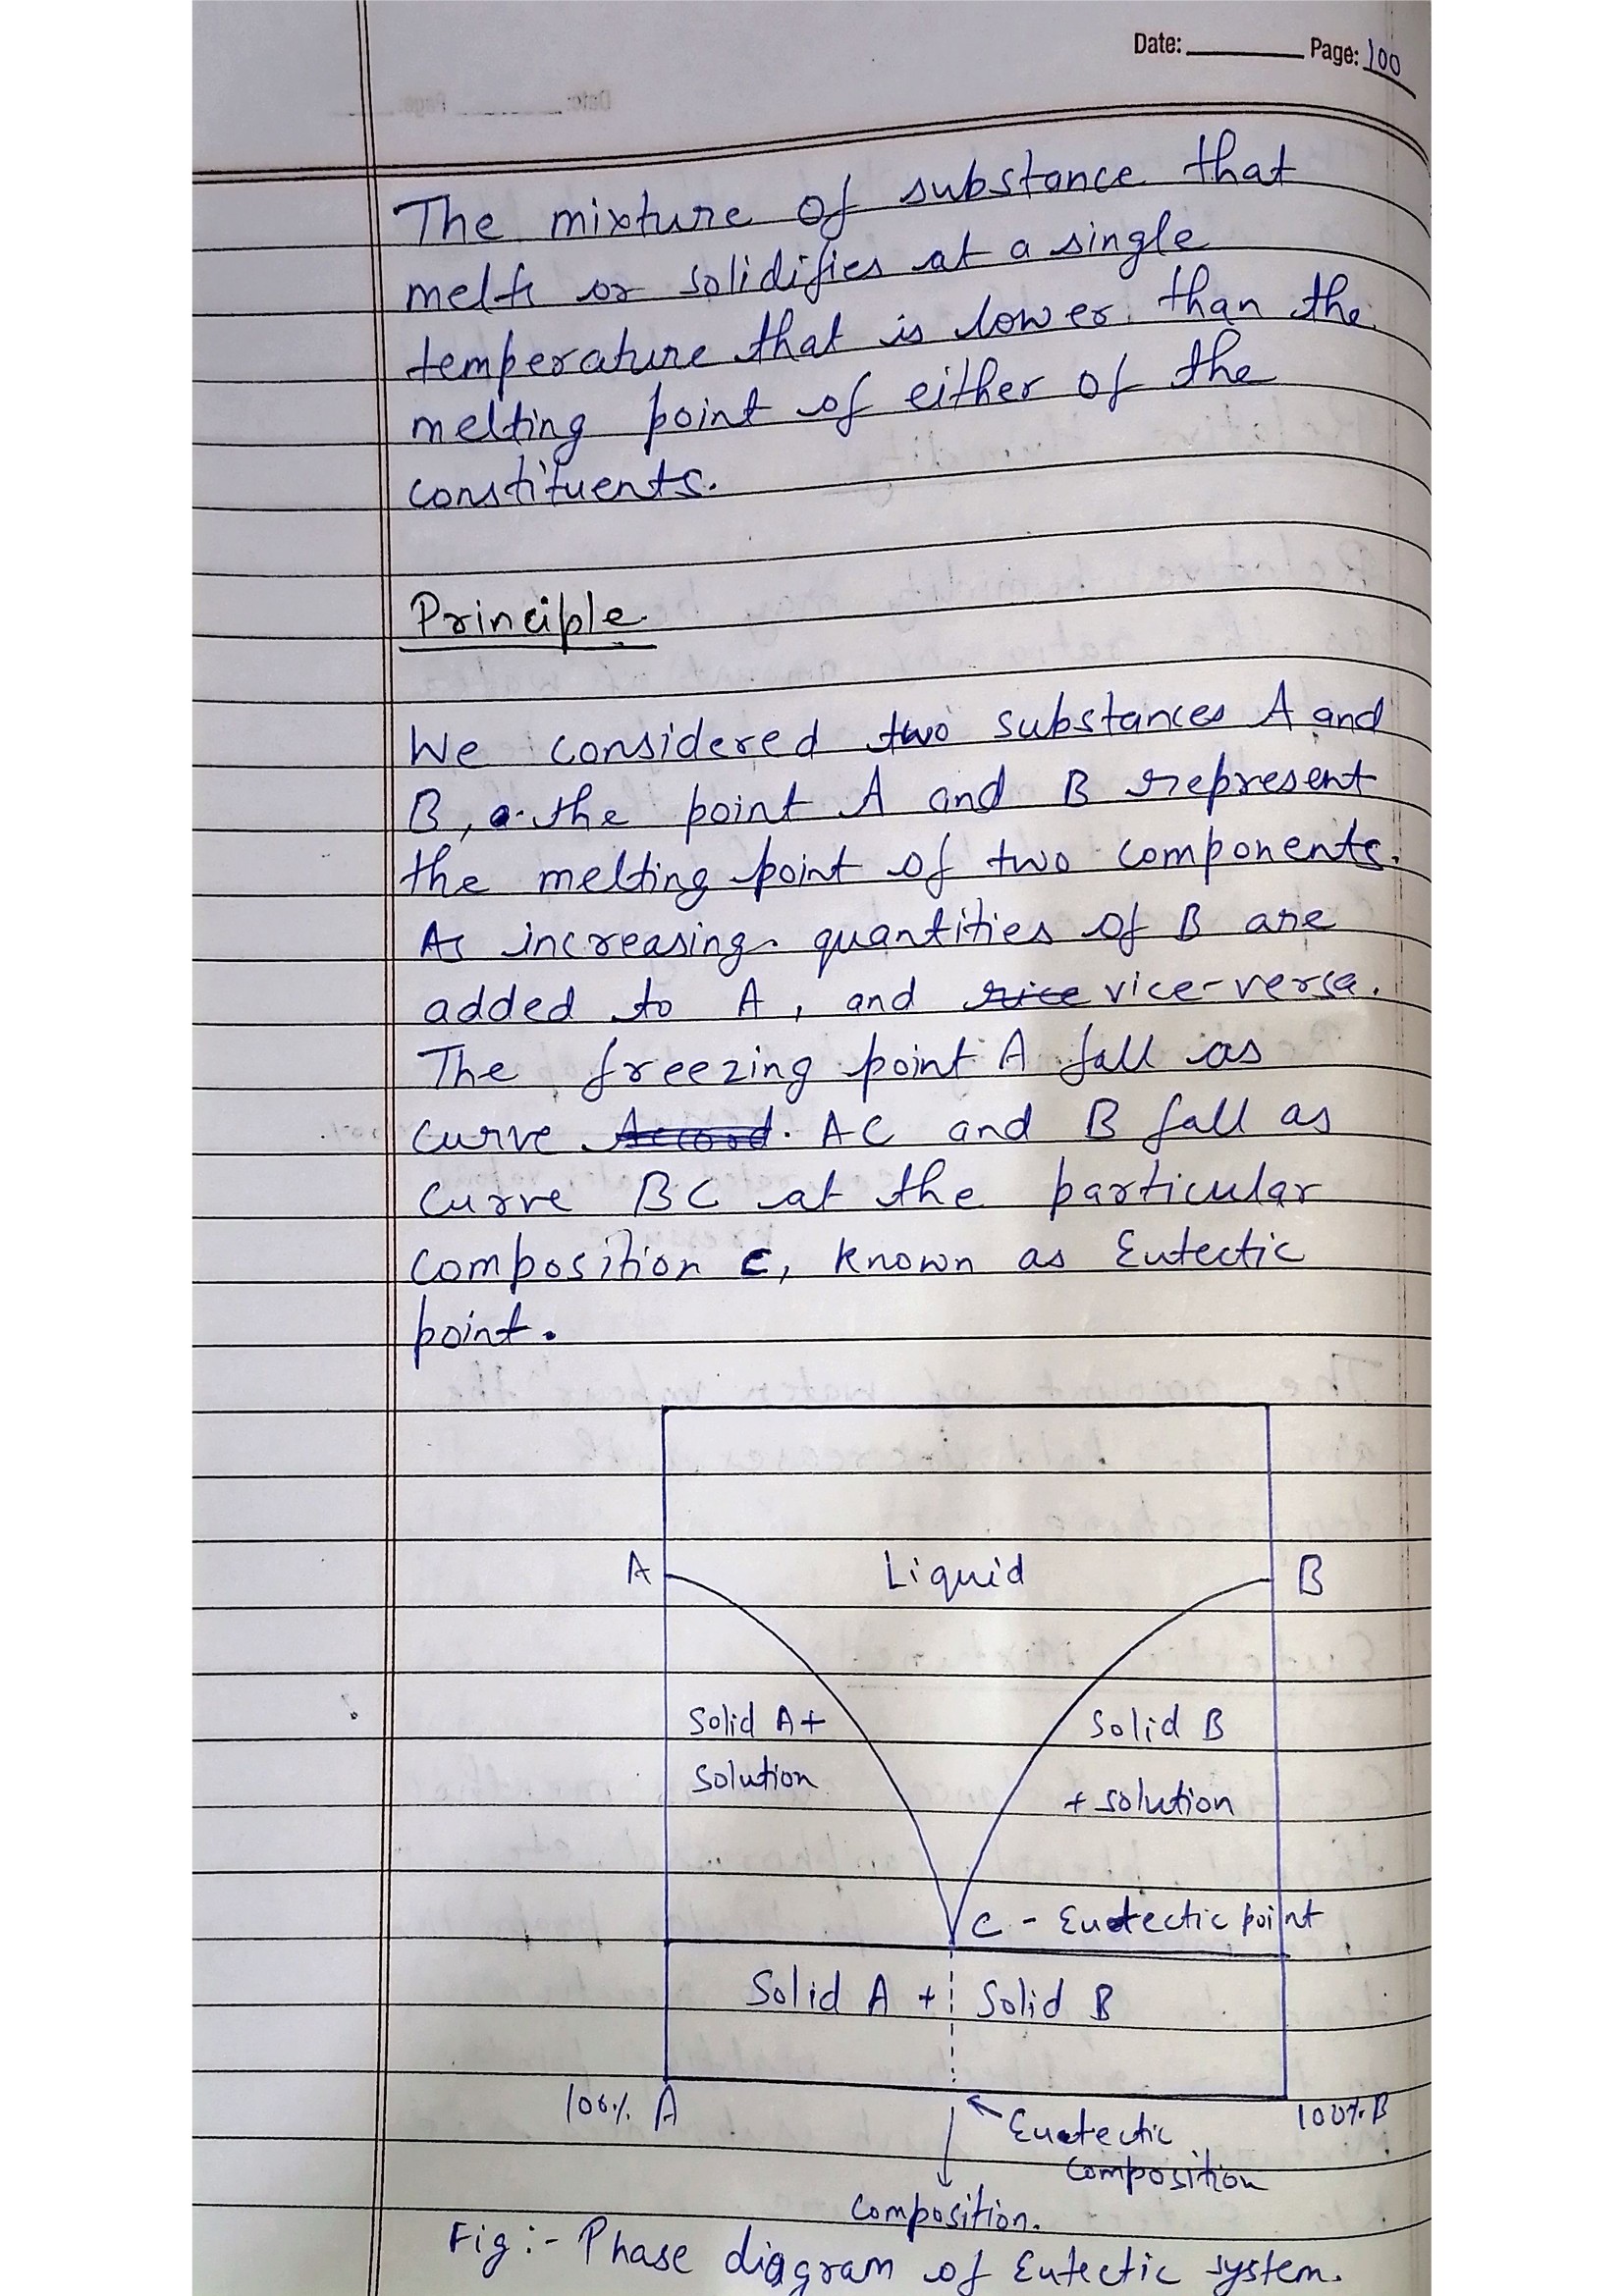 Date: Page: 100
The mixture of substance that
melts or solidifies at a single
temperature that is lower than the
melting point of either of the
constituents.
Principle
We considered two substances A and
B, the point A and B represent
the melting point of two components.
As increasing quantities of B are
added to A, and vice-versa.
The freezing point A fall as
curve AC and B fall as
curve BC at the particular
composition C, known as Eutectic
point.
A Liquid B
Solid A+ Solid B
Solution + solution
C - Eutectic point
Solid A + Solid B
100% A 100% B
Eutectic
composition
composition.
Fig:- Phase diagram of Eutectic system.